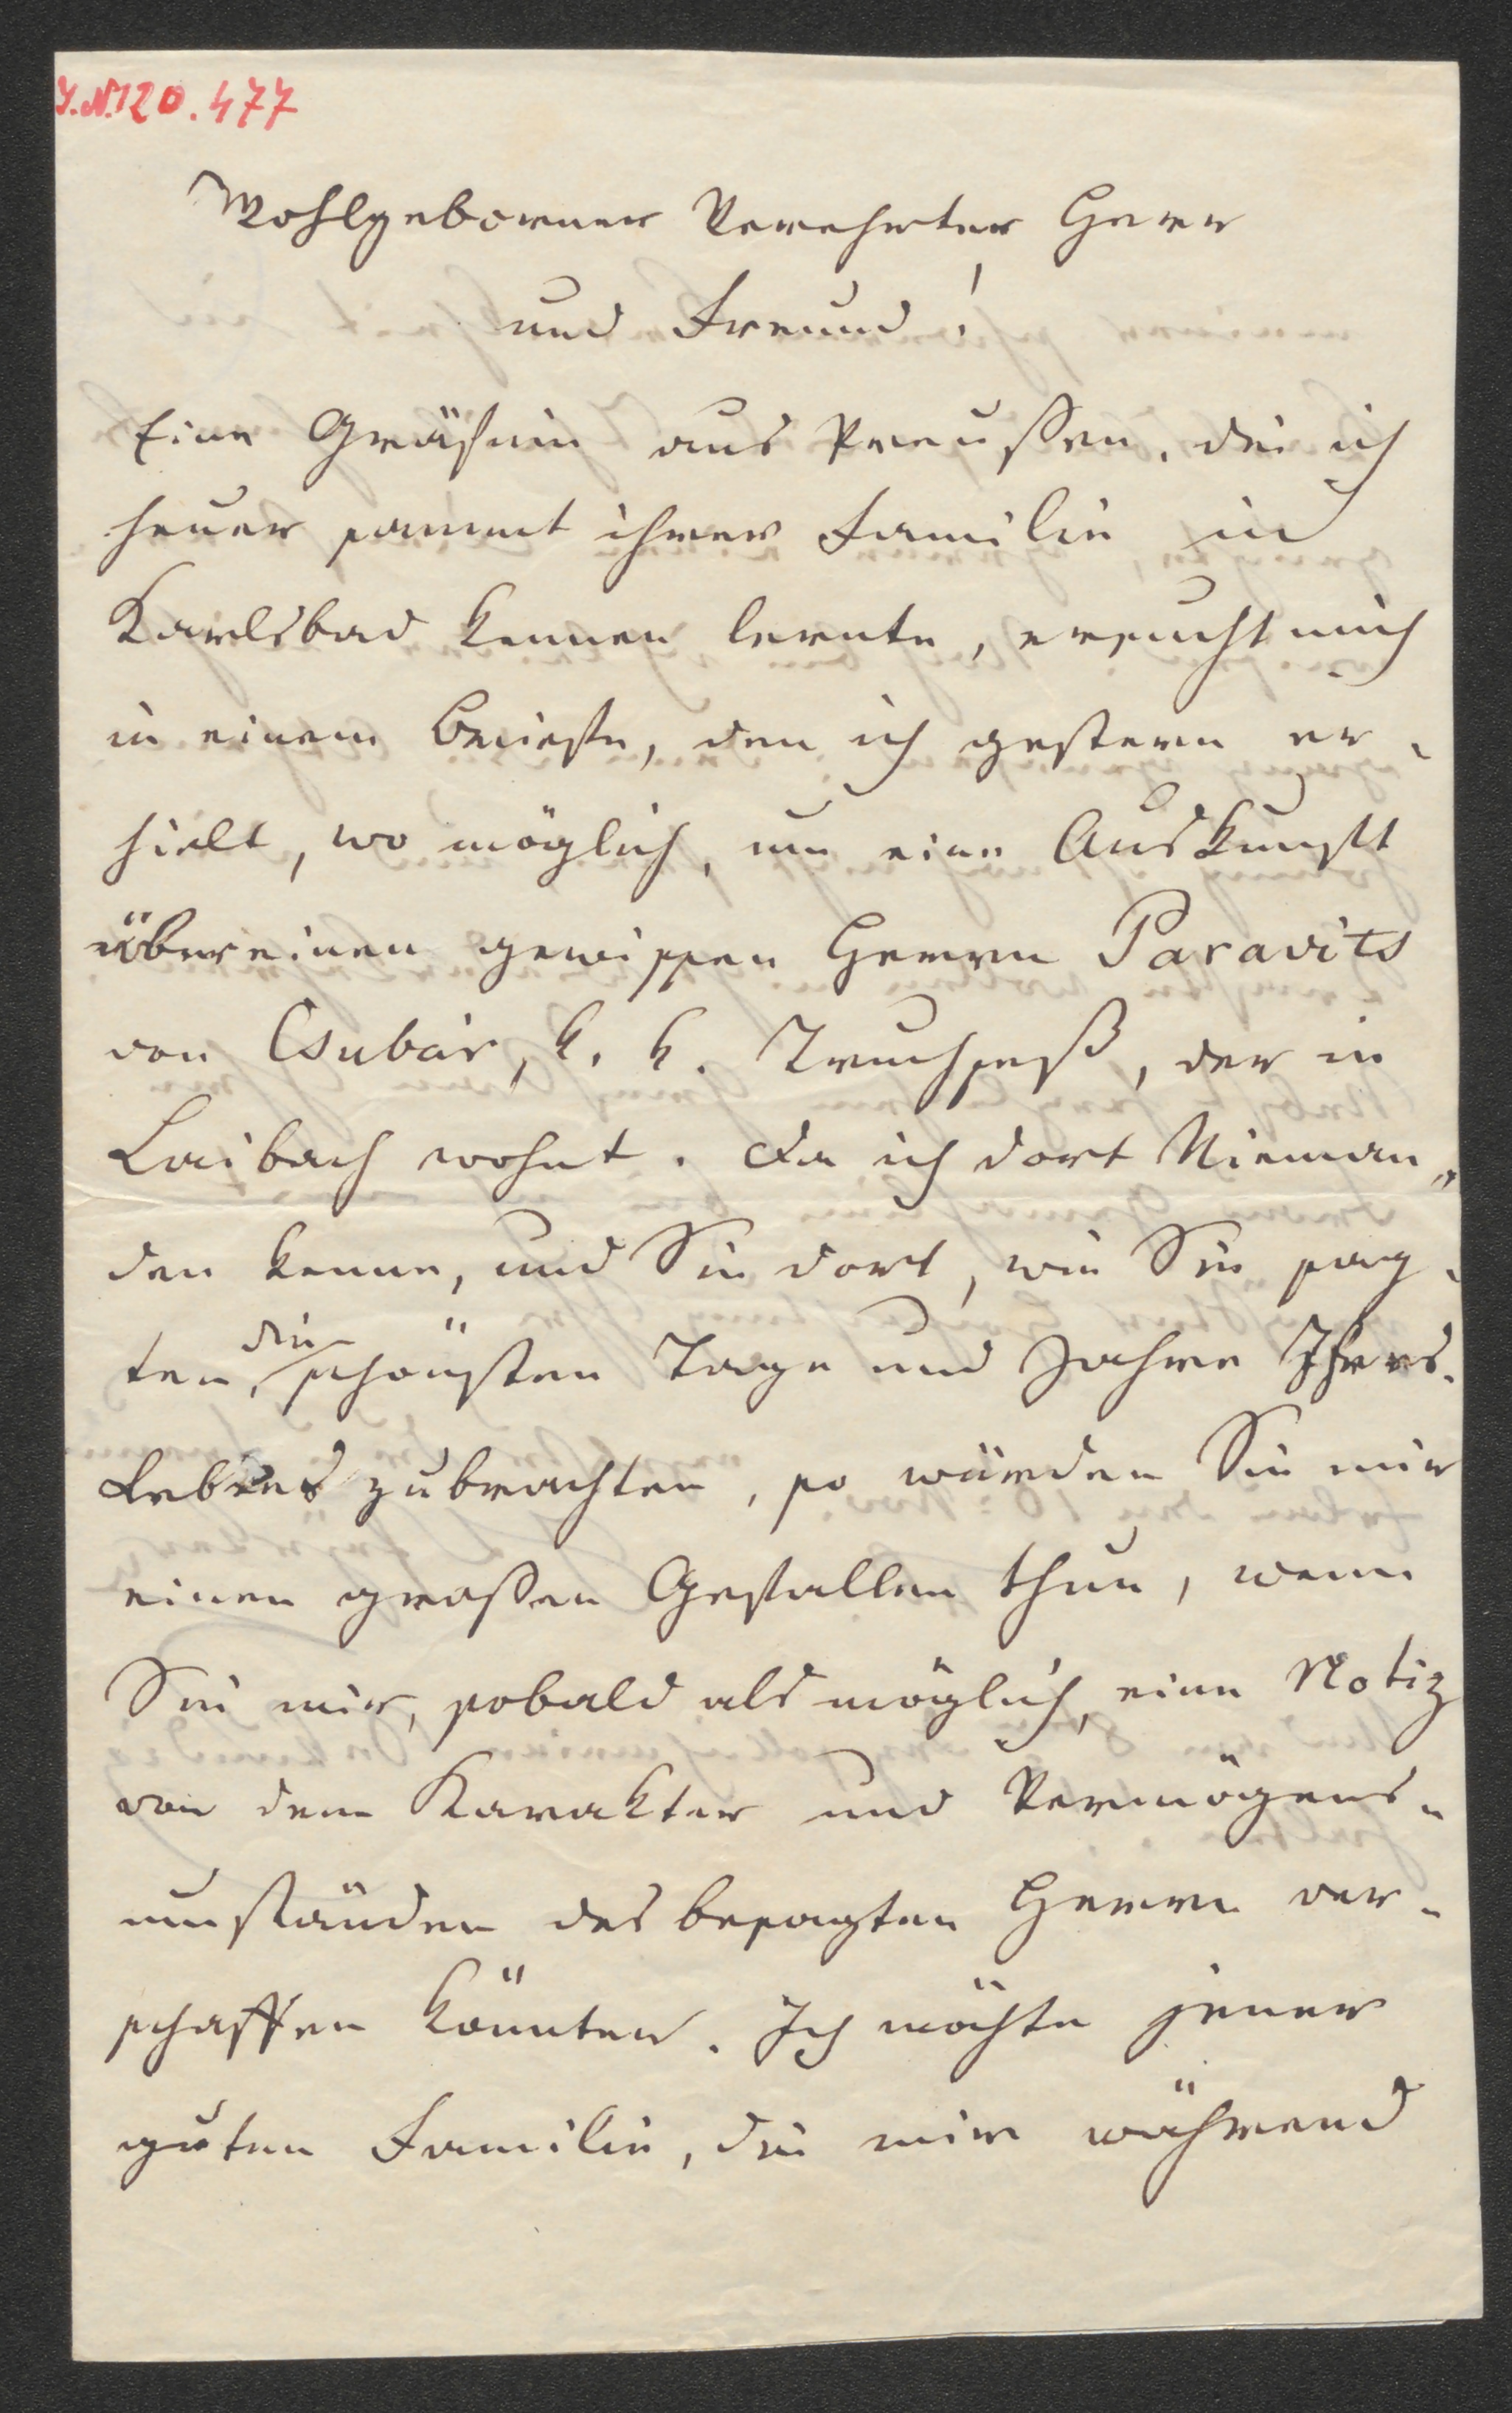 I.N.120.477
Wohlgeborner Verehrter Herr
und Freund!
Eine Gräfinn aus Preußen, die ich
heuer sammt ihrer Familie in
Karlsbad kennen lernte, ersucht mich
in einem Briefe, den ich gestern er-
hielt, wo möglich, um eine Auskunft
über einen gewissen Herrn Paravits
von Csubár, k. k. Truchseß, der in
Laibach wohnt. Da ich dort Nieman-
den kenne, und Sie dort, wie Sie sag-
ten, die schönsten Tage und Jahre Ihres
Lebens zubrachten, so würden Sie mir
einen großen Gefallen thun, wenn
Sie mir, sobald als möglich, eine Notiz
von dem Karakter und Vermögens-
umständen des besagten Herrn ver-
schaffen könnten. Ich möchte jener
guten Familie, die mir während